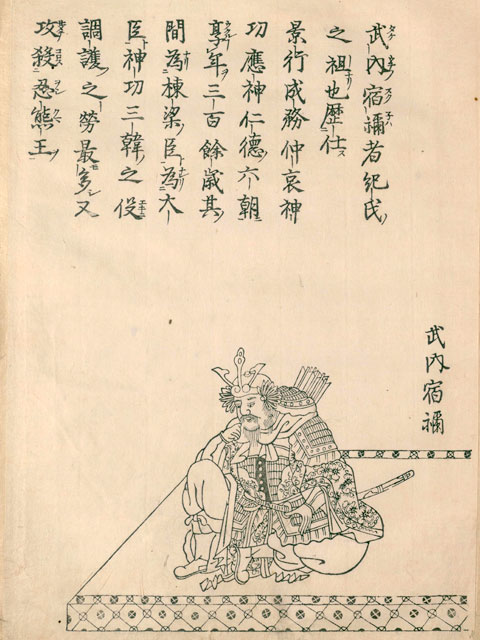 武内宿禰者紀氏
之祖也歴仕
景行成務仲哀神
功應神仁德六朝
享年三百餘歳其
間為棟梁臣為大
臣神功三韓之役
調護之勞最多又
攻殺忍熊王
武内宿禰